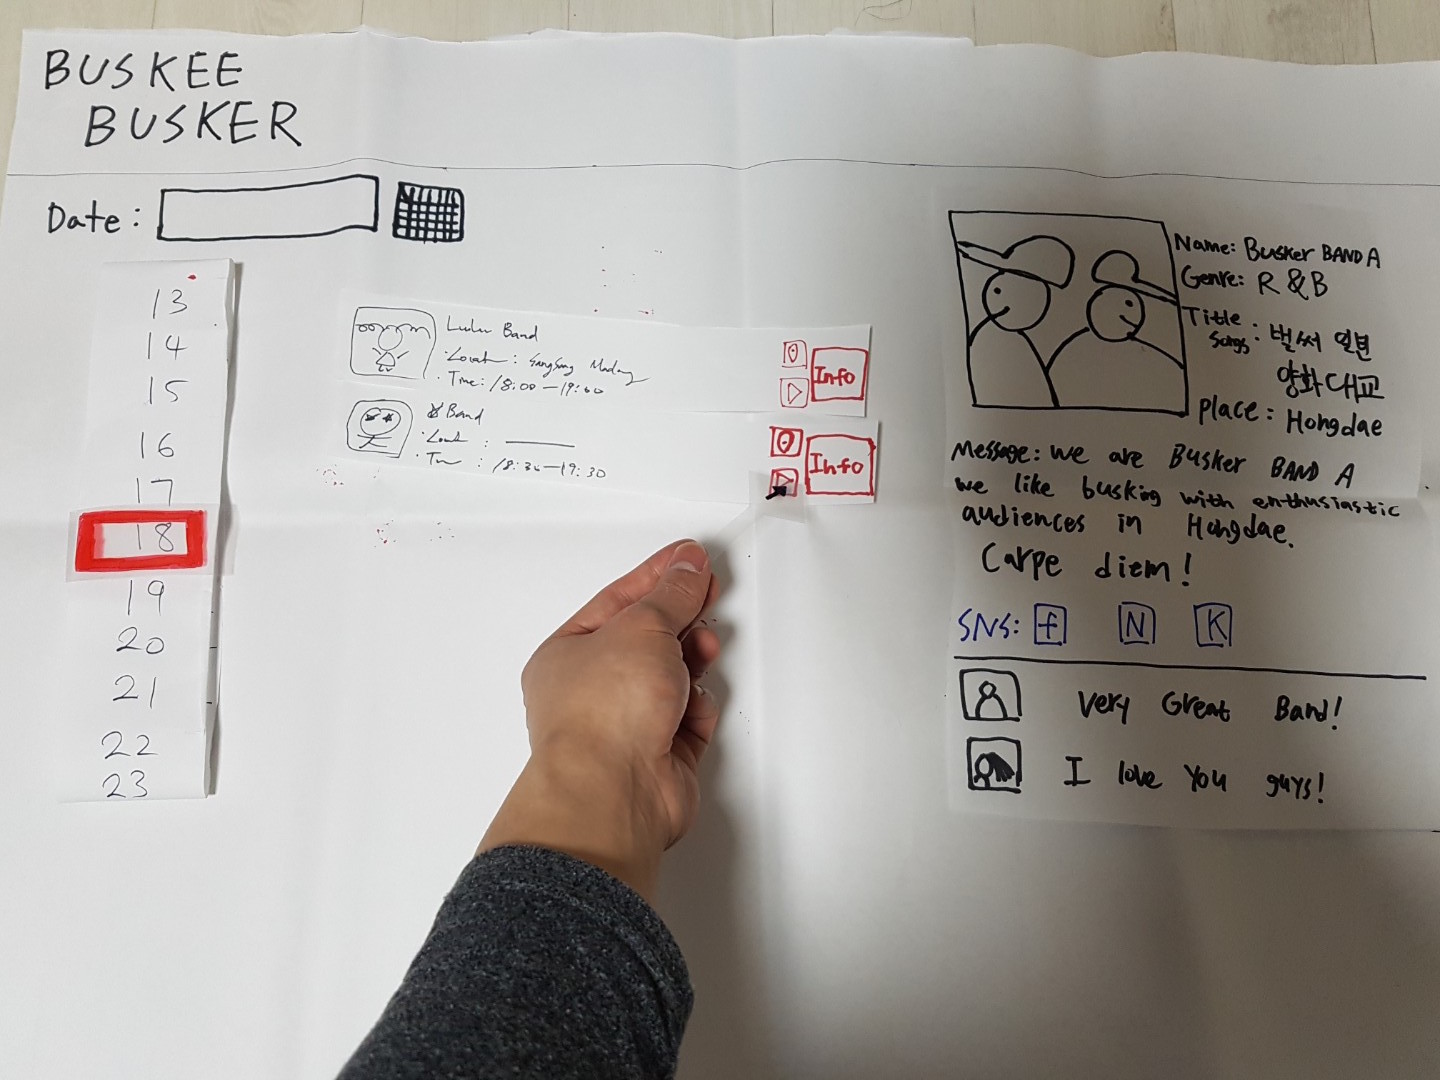 BUSKEE
BUSKER
Date:
13
14
15
16
17
18
19
20
21
22
23
Lulu Band
Time: 18:00—19:00
Info
☆ Band
: 18:30—19:30
Info
Name: Busker BAND A
Genre: R&B
Title Songs: 벌써 일년
양화대교
place: Hongdae
Message: we are Busker BAND A
we like busking with enthusiastic
audiences in Hongdae.
Carpe diem!
SNS: f N K
Very Great Band!
I love you guys!